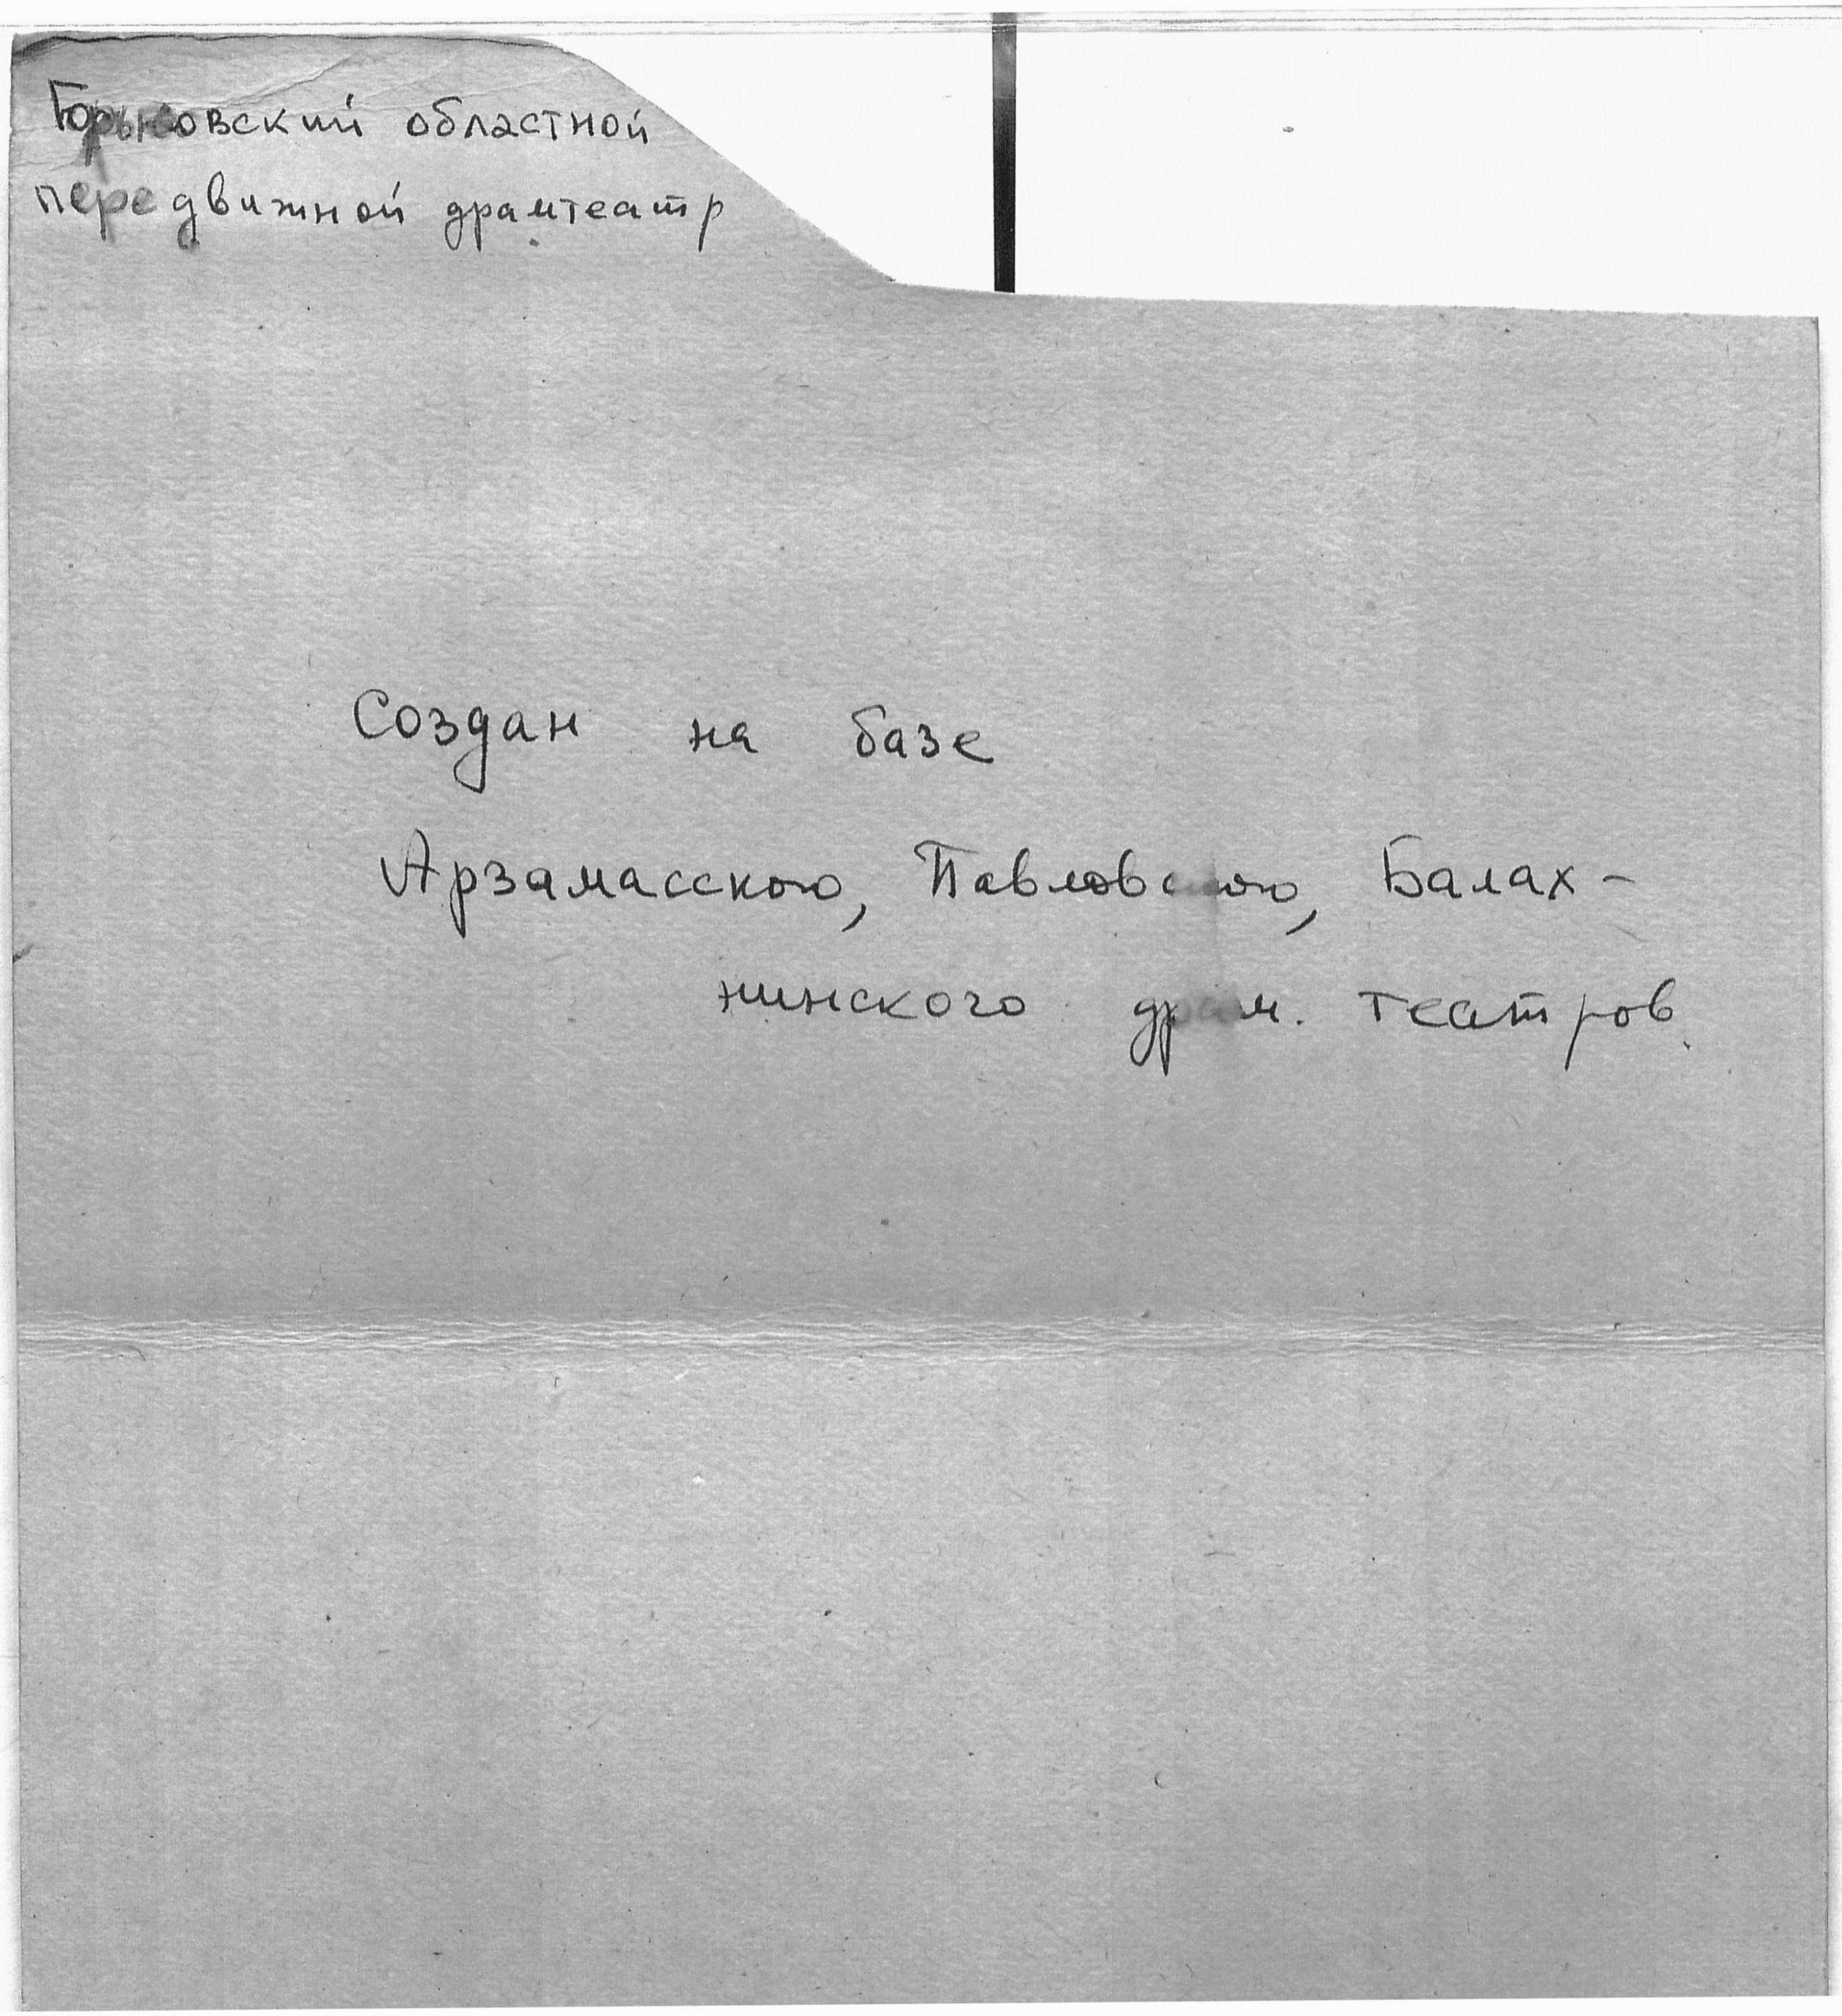 Горьковский областной
передвижной драмтеатр
Создан на базе
Арзамасского, Павловского, Балах-
нинского драм. театров.